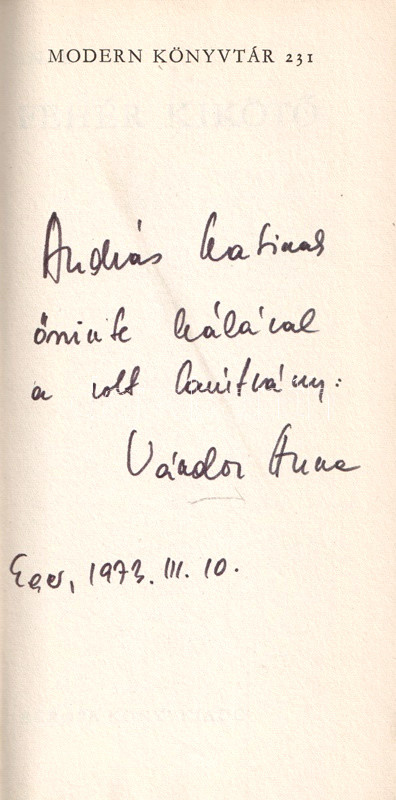 MODERN KÖNYVTÁR 231
András Katinak
őszinte hálával
a volt tanítvány:
Vándor Anna
Eger, 1973. III. 10.